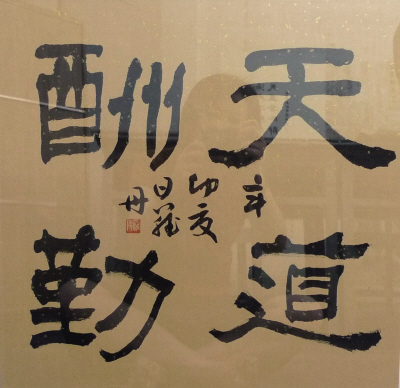 天道
酬勤
辛
卯夏
日
丹